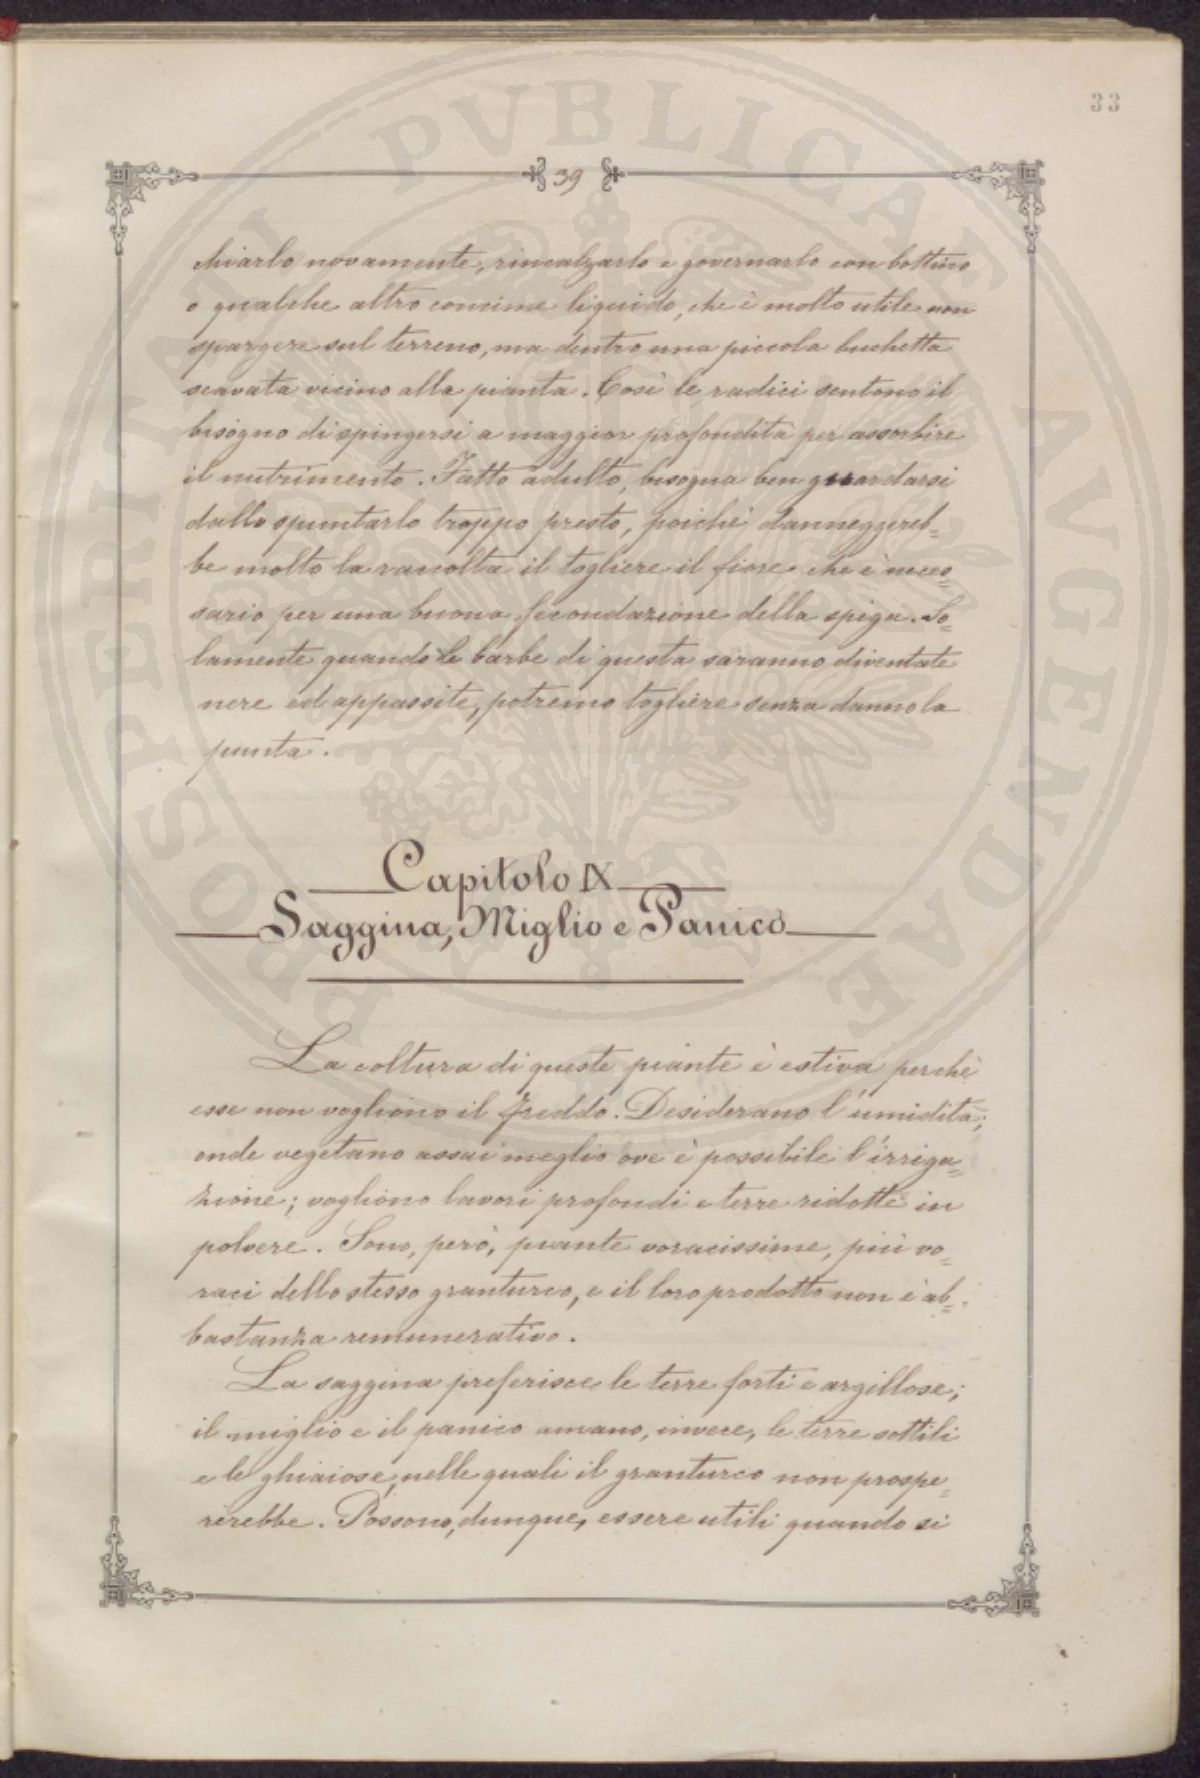 33
39
chiarlo novamente, rincalzarlo e governarlo con bottino
o qualche altro concime liquido, che è molto utile non
spargere sul terreno, ma dentro una piccola buchetta
scavata vicino alla pianta. Così le radici sentono il
bisogno di spingersi a maggior profondità per assorbire
il nutrimento. Fatto adulto, bisogna ben guardarsi
dallo spuntarlo troppo presto, poichè danneggereb=
be molto la raccolta il togliere il fiore che è neces=
sario per una buona fecondazione della spiga. So=
lamente quando le barbe di questa saranno diventate
nere ed appassite, potremo togliere senza danno la
punta.
Capitolo IX
Saggina, Miglio e Panico
La coltura di queste piante è estiva perchè
esse non vogliono il freddo. Desiderano l'umidità;
onde vegetano assai meglio ove è possibile l'irriga=
zione; vogliono lavori profondi e terre ridotte in
polvere. Sono, però, piante voracissime, più vo=
raci dello stesso granturco, e il loro prodotto non è ab=
bastanza remunerativo.
La saggina preferisce le terre forti e argillose;
il miglio e il panico amano, invece, le terre sottili
e le ghiaiose, nelle quali il granturco non prospe=
rerebbe. Possono, dunque, essere utili quando si
PROSPERITATI PVBLICAE AVGENDAE